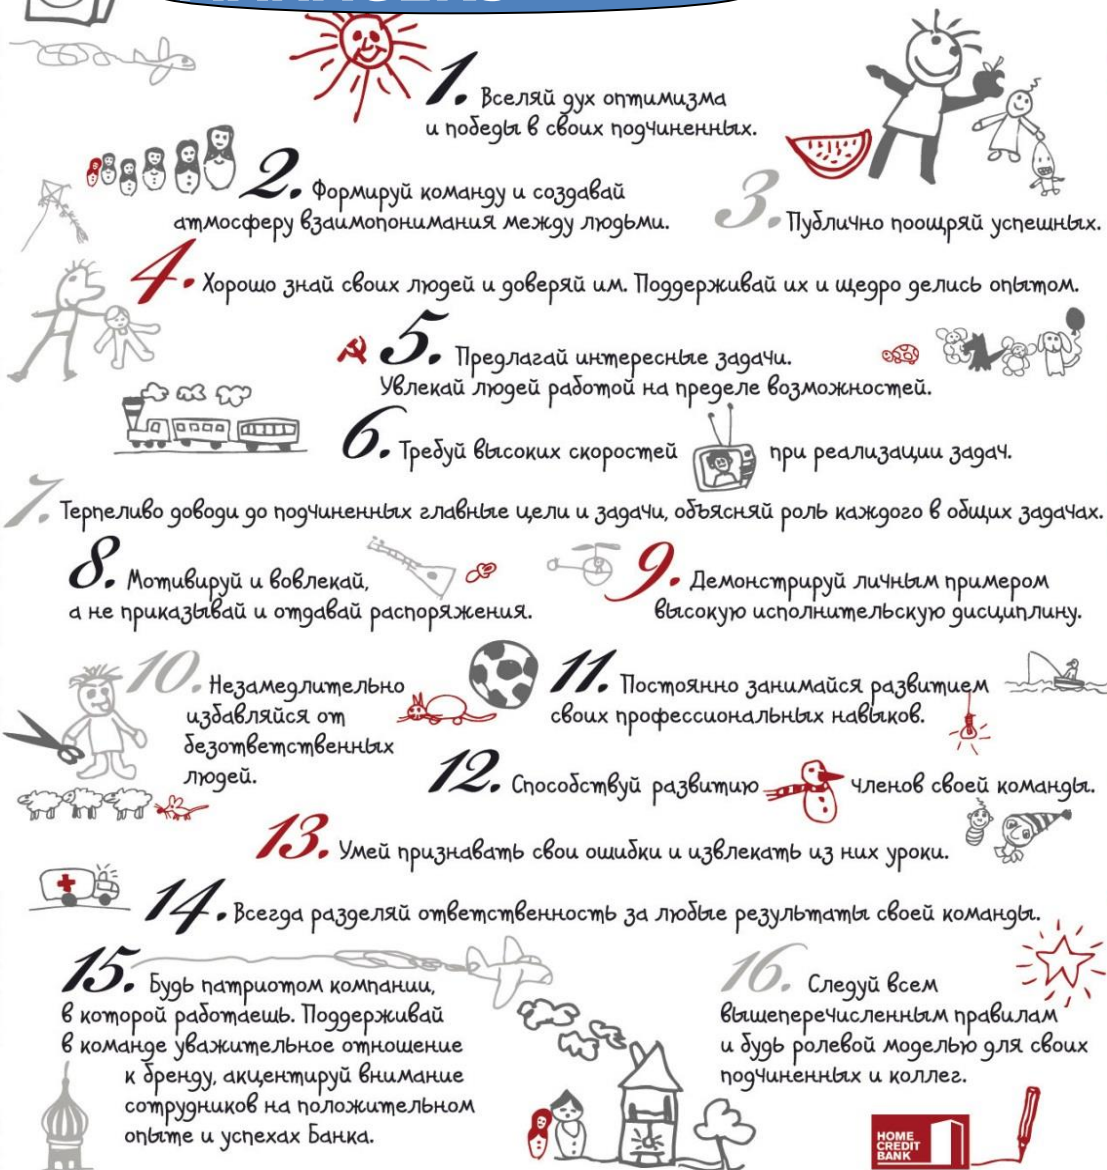 1. Вселяй дух оптимизма
и победы в своих подчиненных.
2. Формируй команду и создавай
атмосферу взаимопонимания между людьми.
3. Публично поощряй успешных.
4. Хорошо знай своих людей и доверяй им. Поддерживай их и щедро делись опытом.
5. Предлагай интересные задачи.
Увлекай людей работой на пределе возможностей.
6. Требуй высоких скоростей при реализации задач.
7. Терпеливо доводи до подчиненных главные цели и задачи, объясняй роль каждого в общих задачах.
8. Мотивируй и вовлекай,
а не приказывай и отдавай распоряжения.
9. Демонстрируй личным примером
высокую исполнительскую дисциплину.
10. Незамедлительно
избавляйся от
безответственных
людей.
11. Постоянно занимайся развитием
своих профессиональных навыков.
12. Способствуй развитию членов своей команды.
13. Умей признавать свои ошибки и извлекать из них уроки.
14. Всегда разделяй ответственность за любые результаты своей команды.
15. Будь патриотом компании,
в которой работаешь. Поддерживай
в команде уважительное отношение
к бренду, акцентируй внимание
сотрудников на положительном
опыте и успехах Банка.
16. Следуй всем
вышеперечисленным правилам
и будь ролевой моделью для своих
подчиненных и коллег.
HOME
CREDIT
BANK